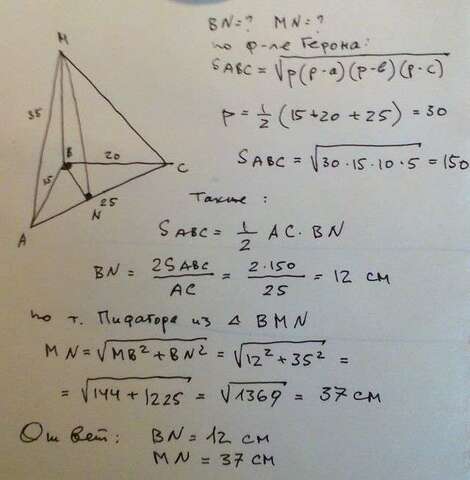 BN = ? MN = ?
по ф-ле Герона:
S ABC = √p(p-a)(p-b)(p-c)
p = 1/2 (15+20+25) = 30
S ABC = √30·15·10·5 = 150
Также:
S ABC = 1/2 AC·BN
BN = 2S ABC / AC = 2·150 / 25 = 12 см
по т. Пифагора из Δ BMN
MN = √MB²+BN² = √12²+35² =
= √144+1225 = √1369 = 37 см
Ответ: BN = 12 см
MN = 37 см
M
35
B
20
C
15
N
25
A